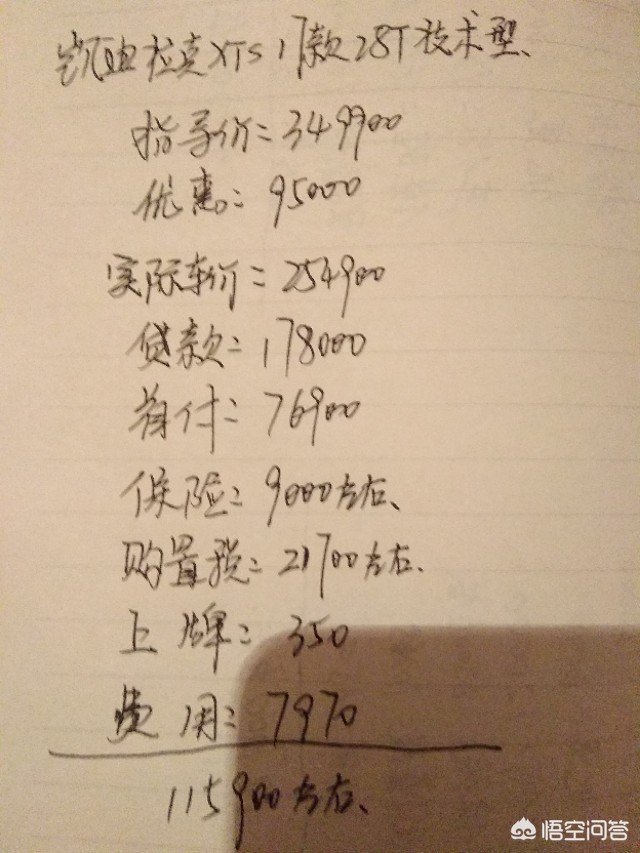 凯迪拉克XTS 17款28T技术型、
指导价=349900
优惠:95000
实际车价=254900
贷款:178000
首付:76900
保险:9000左右、
购置税:21700左右、
上牌:350
费用:7970
115900左右、
悟空问答